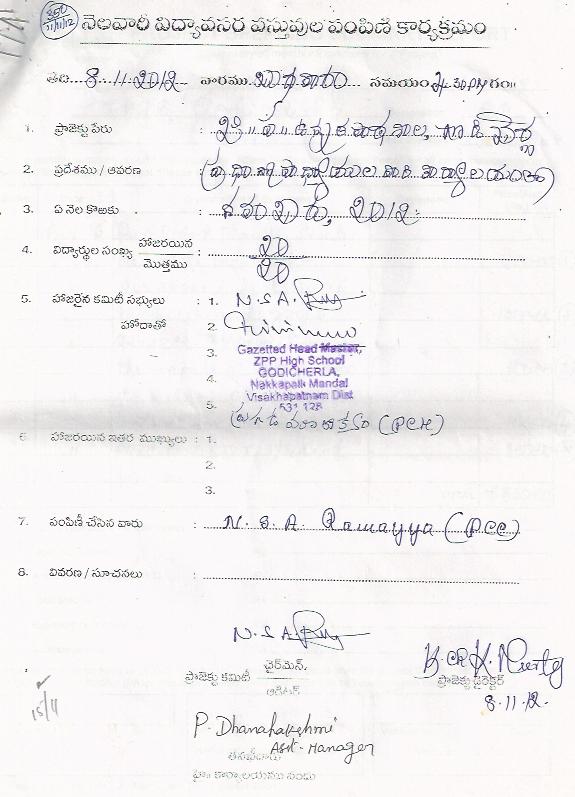 నెలవారీ విద్యావసర వస్తువుల పంపిణీ కార్యక్రమం
11/11/12
తేది 8.11.2012 వారము బుధవారం సమయం గం॥
1. ప్రాజెక్టు పేరు : ఉన్నత పాఠశాల,
2. ప్రదేశము / ఆవరణ : కార్యాలయం
3. ఏ నెల కొఱకు : నవంబరు, 2012
4. విద్యార్థుల సంఖ్య హాజరయిన / మొత్తము : 20 / 20
5. హాజరైన కమిటీ సభ్యులు : 1. N.S.A.
హోదాతో 2.
3. Gazetted Head Master,
ZPP High School
4. GODICHERLA,
Nakkapalli Mandal
Visakhapatnam Dist
5. 531 126
(PCM)
6. హాజరయిన ఇతర ముఖ్యులు : 1.
2.
3.
7. పంపిణీ చేసిన వారు : N.S.A. Ramayya (PCC)
8. వివరణ / సూచనలు :
N.S.A.
ప్రాజెక్టు కమిటీ ఛైర్మెన్.
K. Murty
ప్రాజెక్టు డైరెక్టర్
8.11.12.
15/11
P. Dhanalakshmi
Asst. Manager